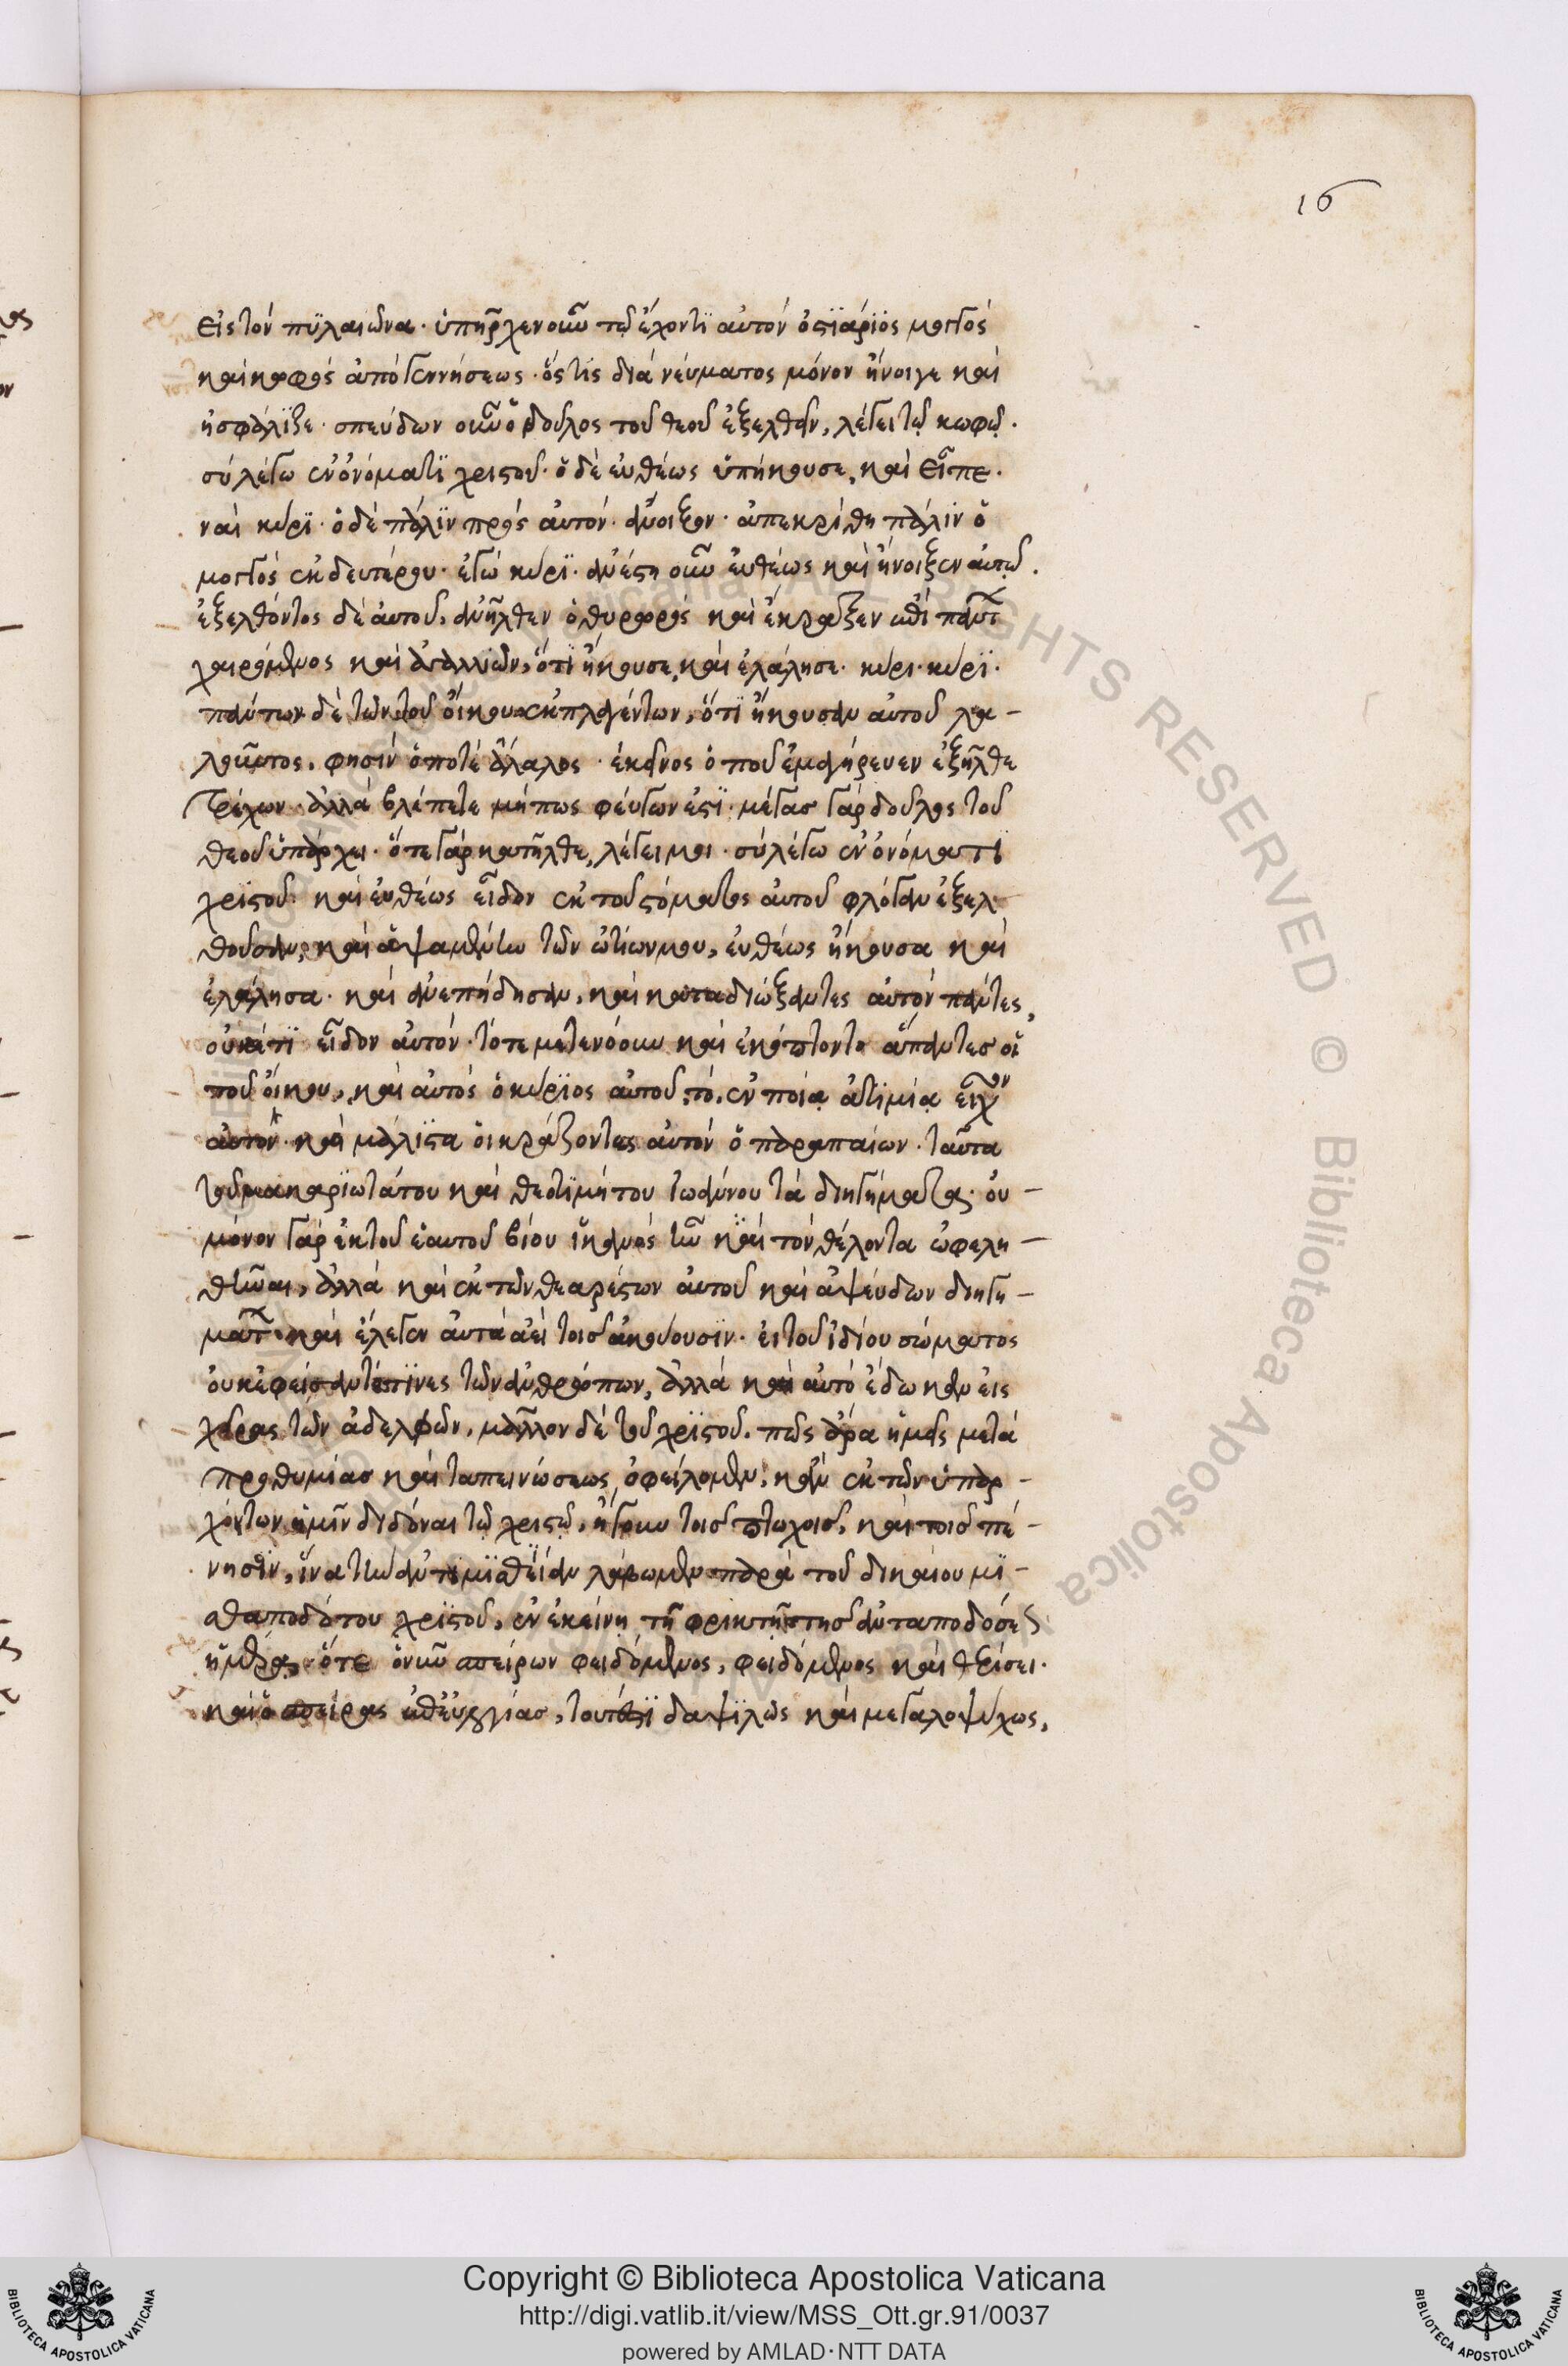 16
εἰς τὸν πϋλαιῶνα· ὑπῆρχεν οὖν τῷ ἔχοντϊ αὐτὸν ὀστϊάρϊος μογγὸς
καὶ κωφὸς ἀπὸ γεννήσεως· ὅς τις διὰ νεύματος μόνον ἤνοιγε καὶ
ἠσφάλϊζε· σπεύδων οὖν ὁ δοῦλος τοῦ θεοῦ ἐξελθεῖν, λέγει τῷ κωφῷ·
σὺ λέγω ἐν ὀνόματϊ χριστοῦ· ὁ δὲ εὐθέως ὑπήκουσε, καὶ εἶπε·
ναὶ κύρϊ· ὁ δὲ πάλϊν πρὸς αὐτόν· ἄνοιξον· ἀπεκρίθη πάλϊν ὁ
μογγὸς ἐκ δευτέρου· ἐγὼ κύρϊ· ἀνέστη οὖν εὐθέως καὶ ἤνοιξεν αὐτῷ.
ἐξελθόντος δὲ αὐτοῦ, ἀνῆλθεν ὁ θυρωρὸς καὶ ἔκραξεν ἐπὶ πάντ
χαιρόμενος καὶ ἀγαλλιῶν, ὅτϊ ἤκουσε, καὶ ἐλάλησε· κύρι· κύρϊ·
πάντων δὲ τῶν τοῦ οἴκου ἐκπλαγέντων, ὅτϊ ἤκουσαν αὐτοῦ λα-
λοῦντος, φησὶν ὁ ποτὲ ἄλαλος· ἐκεῖνος ὁ ποῦ ἐμαγήρευεν ἐξῆλθε
τρέχων· ἀλλὰ βλέπετε μήπως φεύγων ἐστϊ· μέγας γὰρ δοῦλος τοῦ
θεοῦ ὑπάρχει· ὅτε γὰρ κατῆλθε, λέγει μοι· σὺ λέγω ἐν ὀνόματι
χρϊστοῦ· καὶ εὐθέως εἶδον ἐκ τοῦ στόματος αὐτοῦ φλόγαν ἐξελ-
θοῦσαν, καὶ ἁψαμένην τῶν ὠτίων μου, εὐθέως ἤκουσα καὶ
ἐλάλησα· καὶ ἀνεπήδησαν, καὶ καταδιώξαντες αὐτὸν πάντες,
οὐκέτϊ εἶδον αὐτόν· τότε μετενόουν καὶ ἐκόπτοντο ἅπαντες οἱ
τοῦ οἴκου, καὶ αὐτὸς ὁ κύρϊος αὐτοῦ, τὸ, ἐν ποίᾳ ἀτϊμίᾳ εἶχον
αὐτὸν· καὶ μάλϊστα οἱ κράζοντες αὐτὸν ὁ παραπαίων· ταῦτα
τοῦ μακαρϊωτάτου καὶ θεοτϊμήτου ἰωάννου τὰ διηγήματα· οὐ-
μόνον γὰρ ἐκ τοῦ ἑαυτοῦ βίου ἱκανὸς ἦν καὶ τὸν θέλοντα ὠφελη-
θῆναι, ἀλλὰ καὶ ἐκ τῶν θεαρέστων αὐτοῦ καὶ ἀψεύδων διηγη-
μάτ· καὶ ἔλεγεν αὐτὰ ἀεὶ τοῖς ἀκούουσϊν· εἰ τοῦ ἰδίου σώματος
οὐκ ἐφείσαντό τϊνες τῶν ἀνθρώπων, ἀλλὰ καὶ αὐτὸ ἔδωκαν εἰς
χεῖρας τῶν ἀδελφῶν, μᾶλλον δὲ τοῦ χρϊστοῦ. πῶς ἄρα ἡμεῖς μετὰ
προθυμίας καὶ ταπεινώσεως ὀφείλομεν, κἂν ἐκ τῶν ὑπαρ-
χόντων ἡμῖν διδόναι τῷ χριστῷ, ἤγουν τοῖς πτωχοῖς, καὶ τοῖς πέ-
νησϊν, ἵνα τὴν ἀντϊμϊσθΐαν λάβωμεν παρὰ τοῦ δικαίου μϊ-
σθαποδότου χρϊστοῦ, ἐν ἐκείνῃ τῇ φρικτῇ τῆς ἀνταποδόσεως
ἡμέρας, ὅτε ὁ νῦν σπείρων φειδόμενος, φειδόμενος καὶ θερίσει·
καὶ ὁ σπείρας ἐπ' εὐλογίας, τουτέστϊ δαψϊλῶς καὶ μεγαλοψύχως,
Copyright © Biblioteca Apostolica Vaticana
http://digi.vatlib.it/view/MSS_Ott.gr.91/0037
powered by AMLAD·NTT DATA